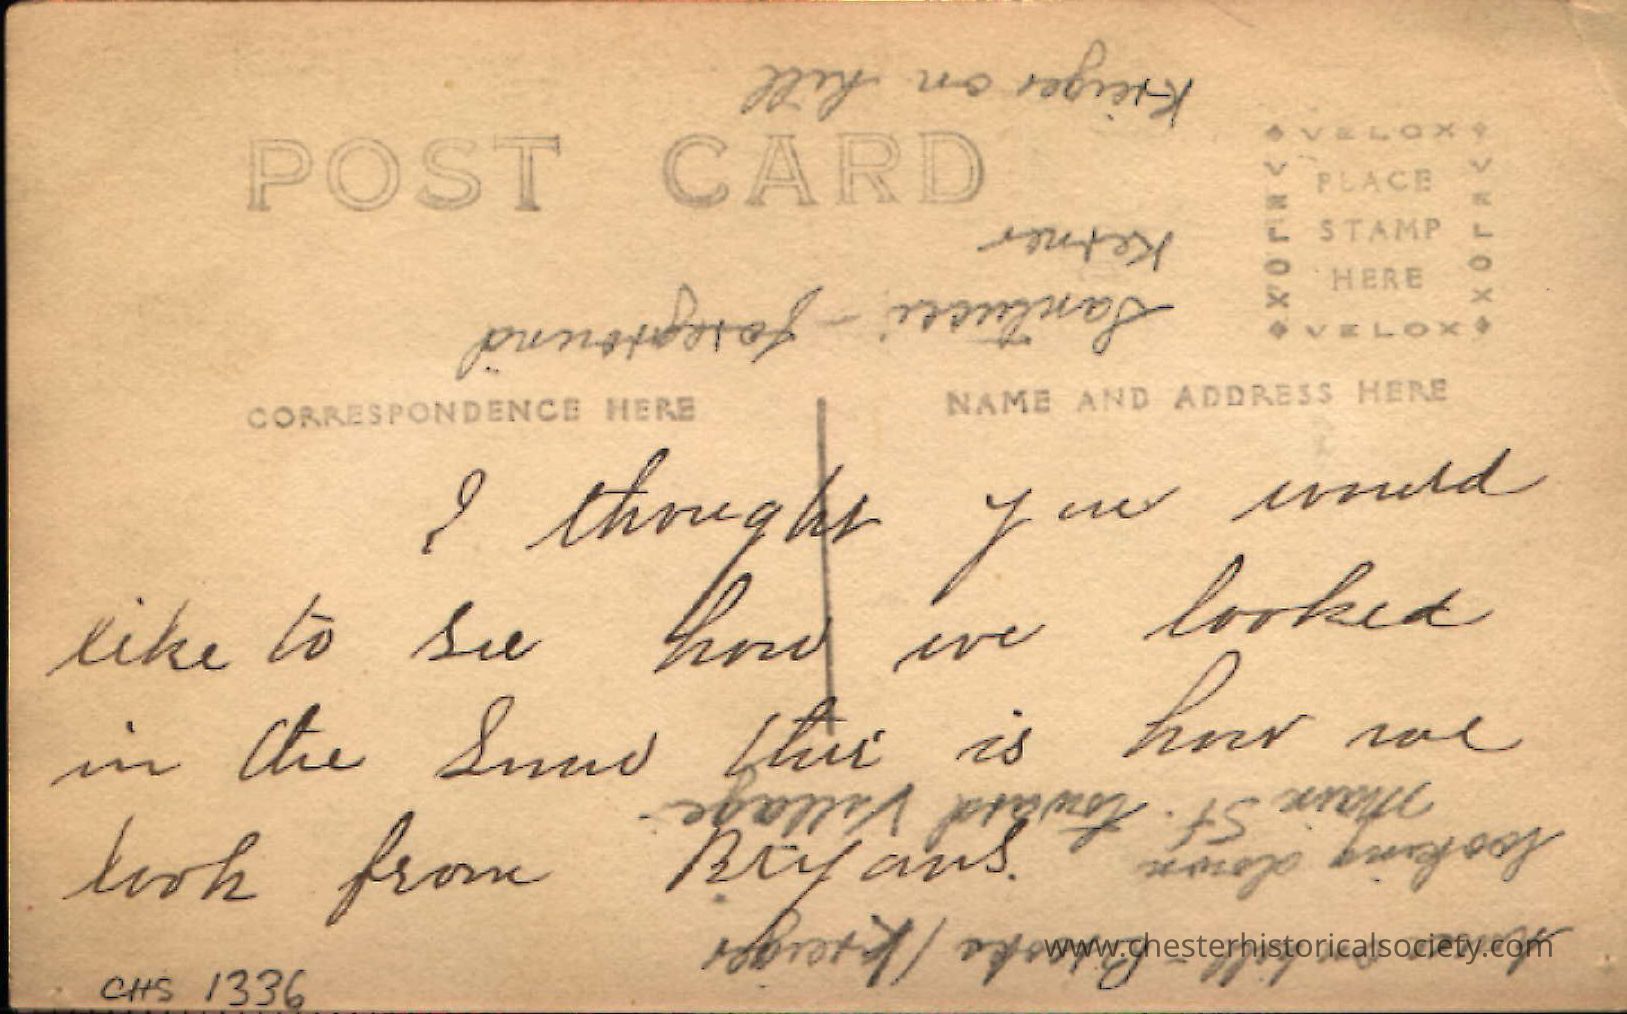 POST CARD
VELOX
VELOX
PLACE
STAMP
HERE
VELOX
VELOX
CORRESPONDENCE HERE
NAME AND ADDRESS HERE
I thought you would
like to see how we looked
in the Snow this is how we
look from Bryans.
on hill - Brooks / Kreiger
looking down
Main St. toward Village
Santucci - foreground
Ketner
Kreiger on hill
CHS 1336
www.chesterhistoricalsociety.com